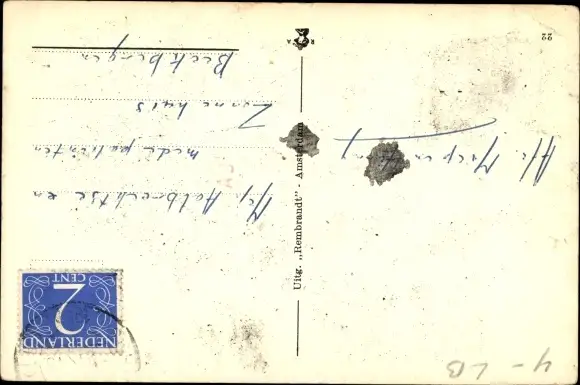 22
Mej. Aalbrechtse en
mede patienten
Zonnehuis
Beekbergen
Uitg. „Rembrandt" - Amsterdam
NEDERLAND
2
CENT
4 - LB